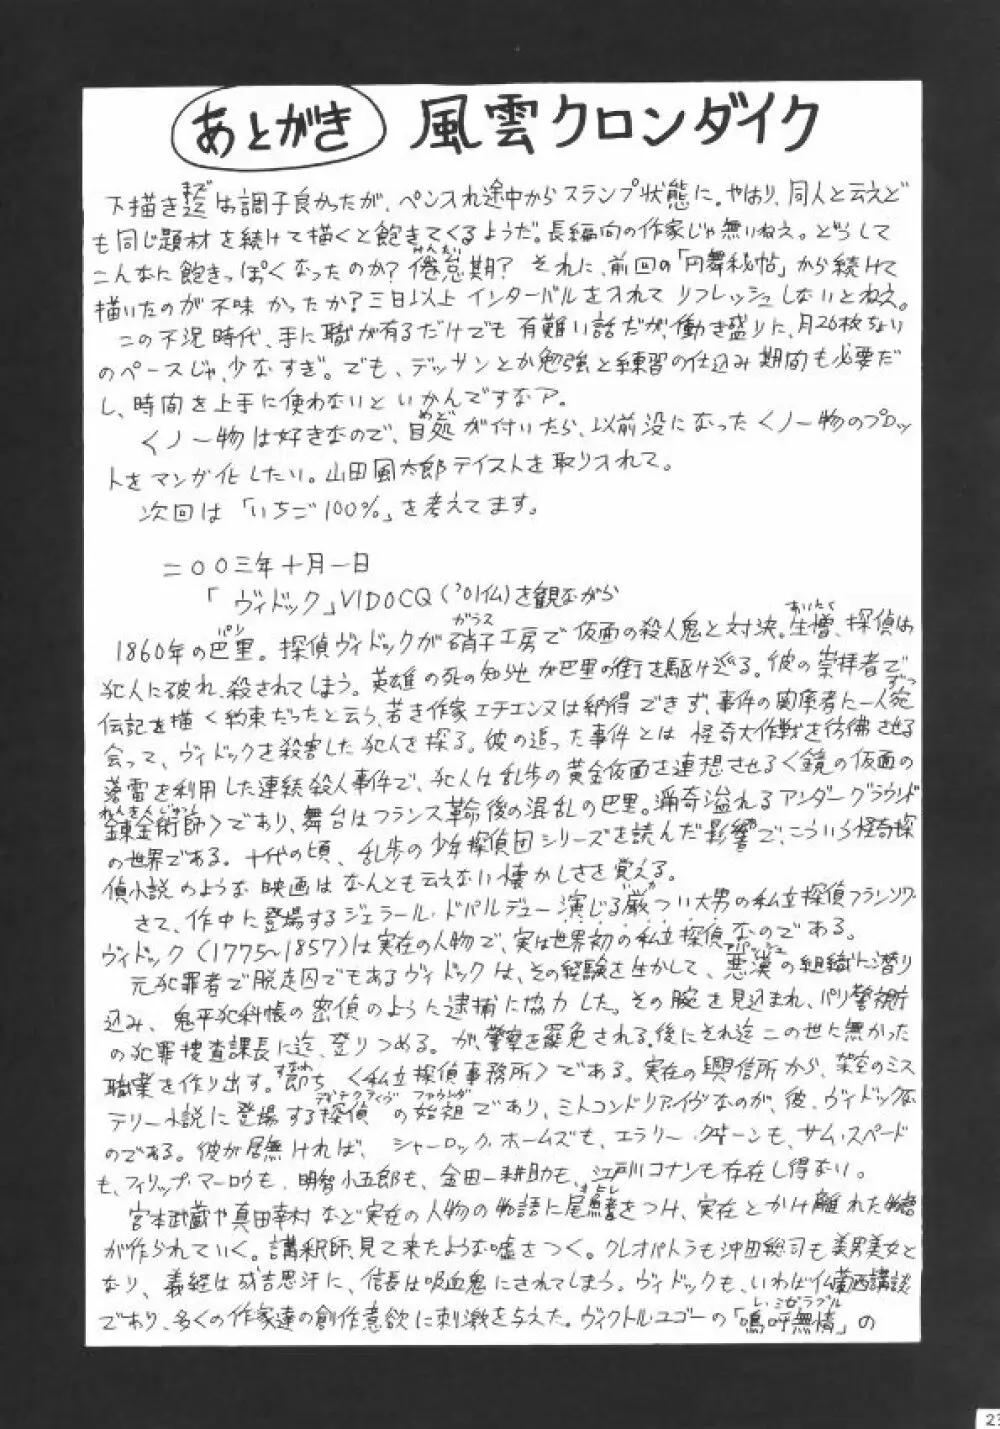 あとがき 風雲クロンダイク
下描き迄は調子良かったが、ペン入れ途中からスランプ状態に。やはり、同人と云えど
も同じ題材を続けて描くと飽きてくるようだ。長編向の作家じゃ無いねえ。どうして
こんなに飽きっぽくなったのか?倦怠期? それに、前回の「円舞秘帖」から続けて
描いたのが不味かったか?三日以上インターバルを入れてリフレッシュしないとねえ。
この不況時代、手に職が有るだけでも有難い話だが、働き盛りに、月20枚ちょい
のペースじゃ、少なすぎ。でも、デッサンとか勉強と練習の仕込み期間も必要だ
し、時間を上手に使わないといかんですなア。
くノ一物は好きなので、目処が付いたら、以前没になったくノ一物のプロッ
トをマンガ化したい。山田風太郎テイストを取り入れて。
次回は「いちご100%」を考えてます。
二〇〇三年十月一日
「ヴィドック」VIDOCQ('01仏)を観ながら
1860年の巴里。探偵ヴィドックが硝子工房で仮面の殺人鬼と対決。生憎、探偵は
犯人に破れ、殺されてしまう。英雄の死の知らせが巴里の街を駆け巡る。彼の崇拝者で
伝記を描く約束だったと云う、若き作家エチエンヌは納得できず、事件の関係者に一人宛
会って、ヴィドックを殺害した犯人を探る。彼の追った事件とは 怪奇大作戦を彷彿させる
落雷を利用した連続殺人事件で、犯人は乱歩の黄金仮面を連想させる〈鏡の仮面の
錬金術師〉であり、舞台はフランス革命後の混乱の巴里。猟奇溢れるアンダーグラウンド
の世界である。十代の頃、乱歩の少年探偵団シリーズを読んだ影響で、こういう怪奇探
偵小説のような映画はなんとも云えない懐かしさを覚える。
さて、作中に登場するジェラール・ドパルデュー演じる厳つい大男の私立探偵フランソワ・
ヴィドック(1775~1857)は実在の人物で、実は世界初の私立探偵なのである。
元犯罪者で脱走囚でもあるヴィドックは、その経験を生かして、悪漢の組織に潜り
込み、鬼平犯科帳の密偵のように逮捕に協力した。その腕を見込まれ、パリ警視庁
の犯罪捜査課長に迄、登りつめる。が、警察を罷免される。後にそれ迄この世に無かった
職業を作り出す。即ち〈私立探偵事務所〉である。実在の興信所から、架空のミス
テリー小説に登場する探偵の始祖であり、ミトコンドリア・イヴなのが、彼、ヴィドックな
のである。彼が居無ければ、シャーロック・ホームズも、エラリー・クイーンも、サム・スペード
も、フィリップ・マーロウも、明智小五郎も、金田一耕助も、江戸川コナンも存在し得ない。
宮本武蔵や真田幸村など実在の人物の物語に尾鰭をつけ、実在とかけ離れた物語
が作られていく。講釈師、見て来たような嘘をつく。クレオパトラも沖田総司も美男美女と
なり、義経は成吉思汗に、信長は吸血鬼にされてしまう。ヴィドックも、いわば仏蘭西講談
であり、多くの作家達の創作意欲に刺激を与えた。ヴィクトル・ユゴーの「嗚呼無情」の